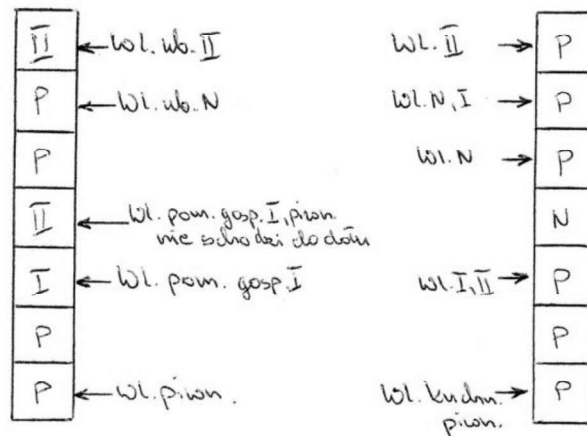 II ← Wl. ub. II
P ← Wl. ub. N
P
II ← Wl. pom. gosp. I, pion
nie schodzi do dołu
I ← Wl. pom. gosp. I
P
P ← Wl. pion.
Wl. II → P
Wl. N, I → P
Wl. N → P
N
Wl. I, II → P
P
Wl. kuchn. → P
pion.